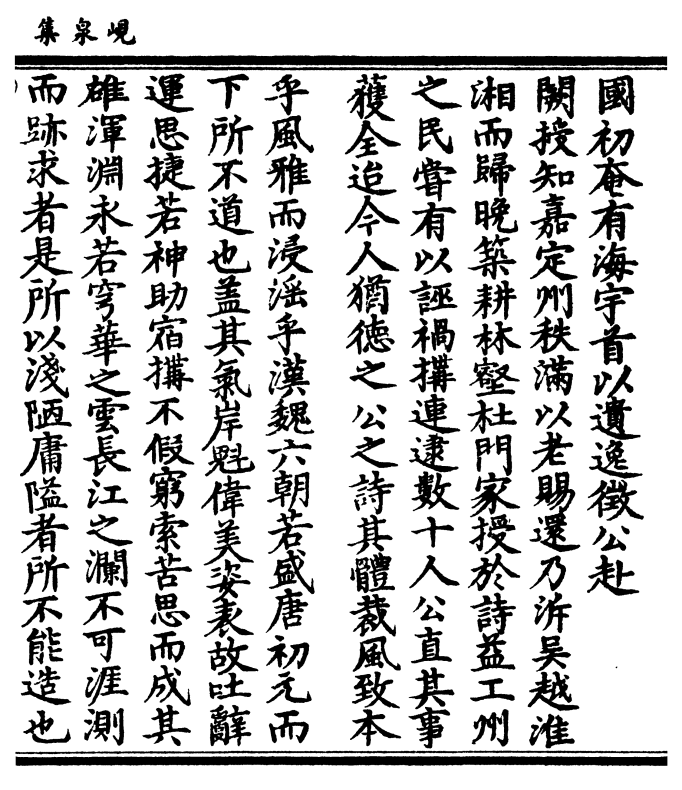 峴泉集
國初奄有海宇首以遺逸徵公赴
闕授知嘉定州秩滿以老賜還乃泝吳越淮
湘而歸晚築耕林壑杜門家授於詩益工州
之民嘗有以誣禍搆連逮數十人公直其事
獲全迨今人猶徳之公之詩其體裁風致本
乎風雅而浸滛乎漢魏六朝若盛唐初元而
下所不道也盖其氣岸魁偉美姿表故吐辭
運思捷若神助宿搆不假窮索苦思而成其
雄渾淵永若穹華之雲長江之瀾不可涯測
而跡求者是所以淺陋庸隘者所不能造也